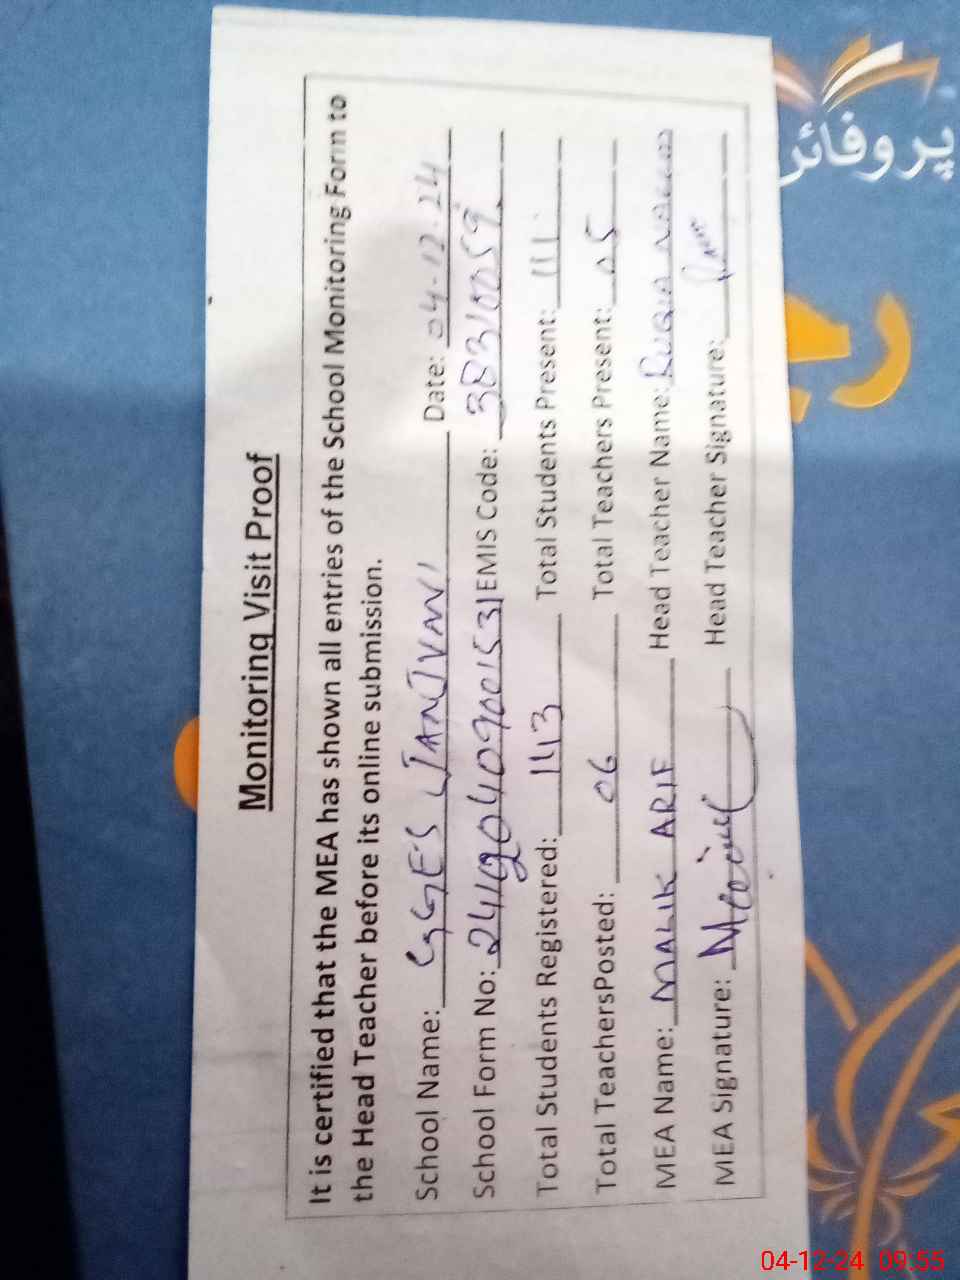 Monitoring Visit Proof
It is certified that the MEA has shown all entries of the School Monitoring Form to
the Head Teacher before its online submission.
School Name: GGES JANJVANI Date: 04-12-24
School Form No: EMIS Code: 38310059
Total Students Registered: 113 Total Students Present: 111
Total TeachersPosted: 06 Total Teachers Present: 05
MEA Name: MALIK ARIF Head Teacher Name: RUQIA
MEA Signature: Head Teacher Signature:
پروفائل
04-12-24 09:55